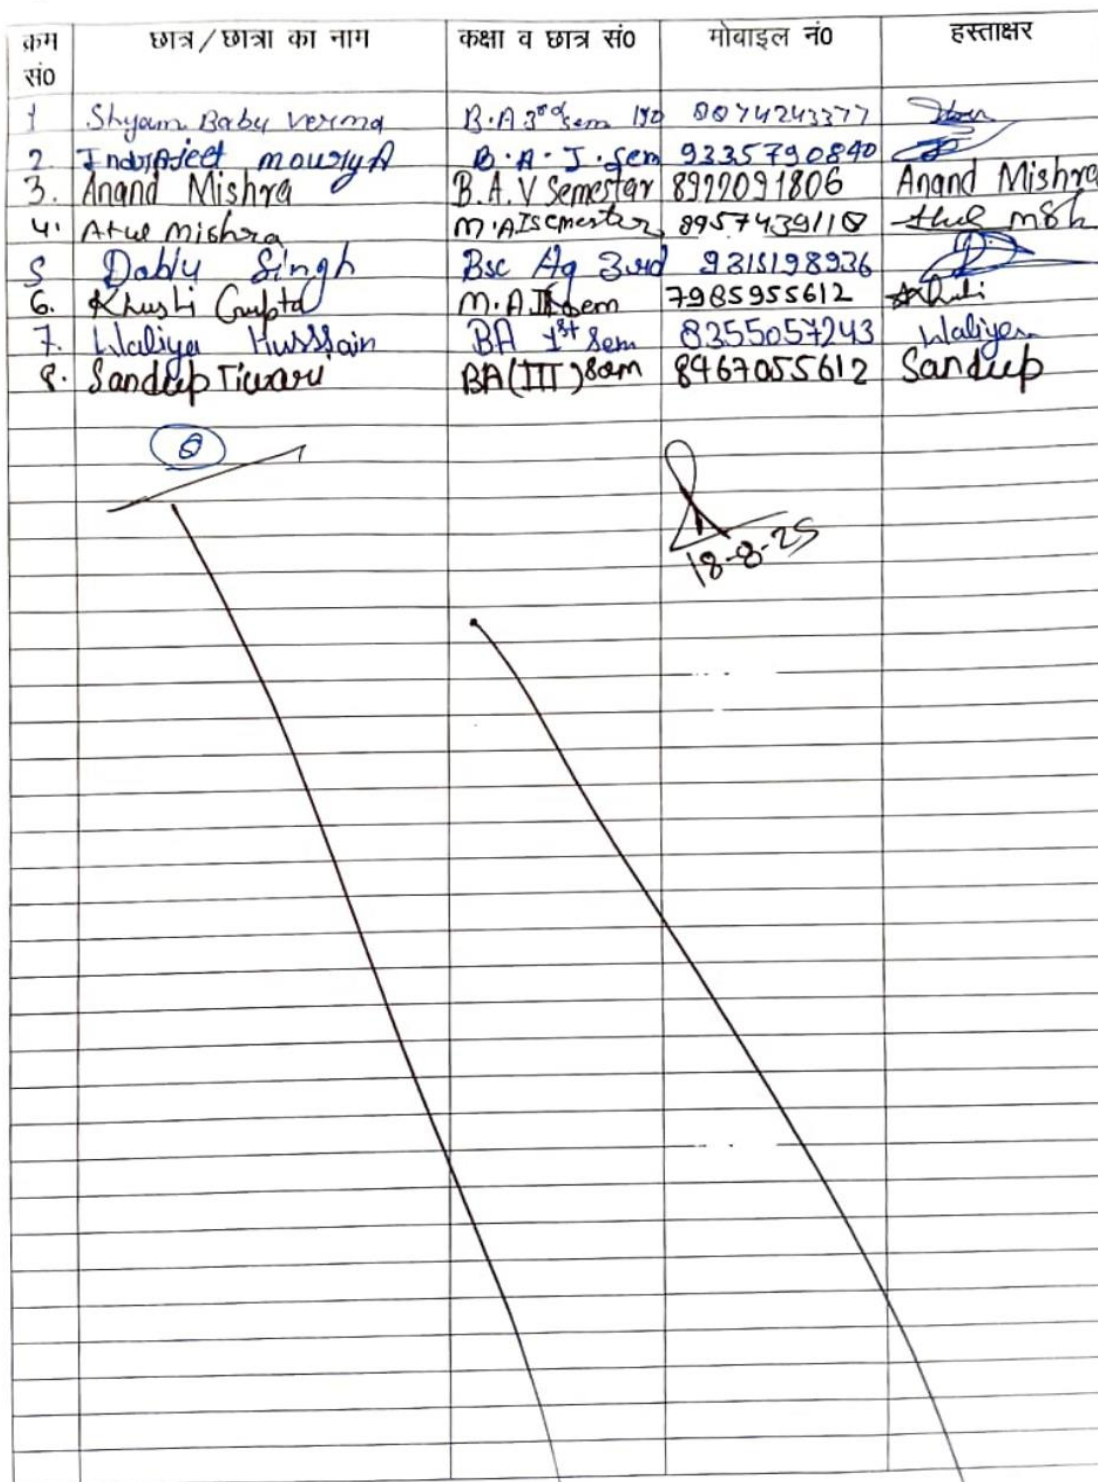 क्रम सं0 छात्र/छात्रा का नाम कक्षा व छात्र सं0 मोबाइल नं0 हस्ताक्षर
1 Shyam Babu Verma B.A 3rd sem 8874243377
2. Indrajeet mouryA B.A. I. Sem 9335790840
3. Anand Mishra B.A. V Semestar 8922091806 Anand Mishra
4. Atul Mishra M.A I semester 8957439110
5 Dablu Singh Bsc Ag 3rd 9315198936
6. Khushi Gupta M.A sem 7985955612 Khushi
7. Waliya Husssain BA 1st Sem 8355057243 Waliya
8. Sandeep Tiwari BA(III) Sem 8467055612 Sandeep
8
18-8-25